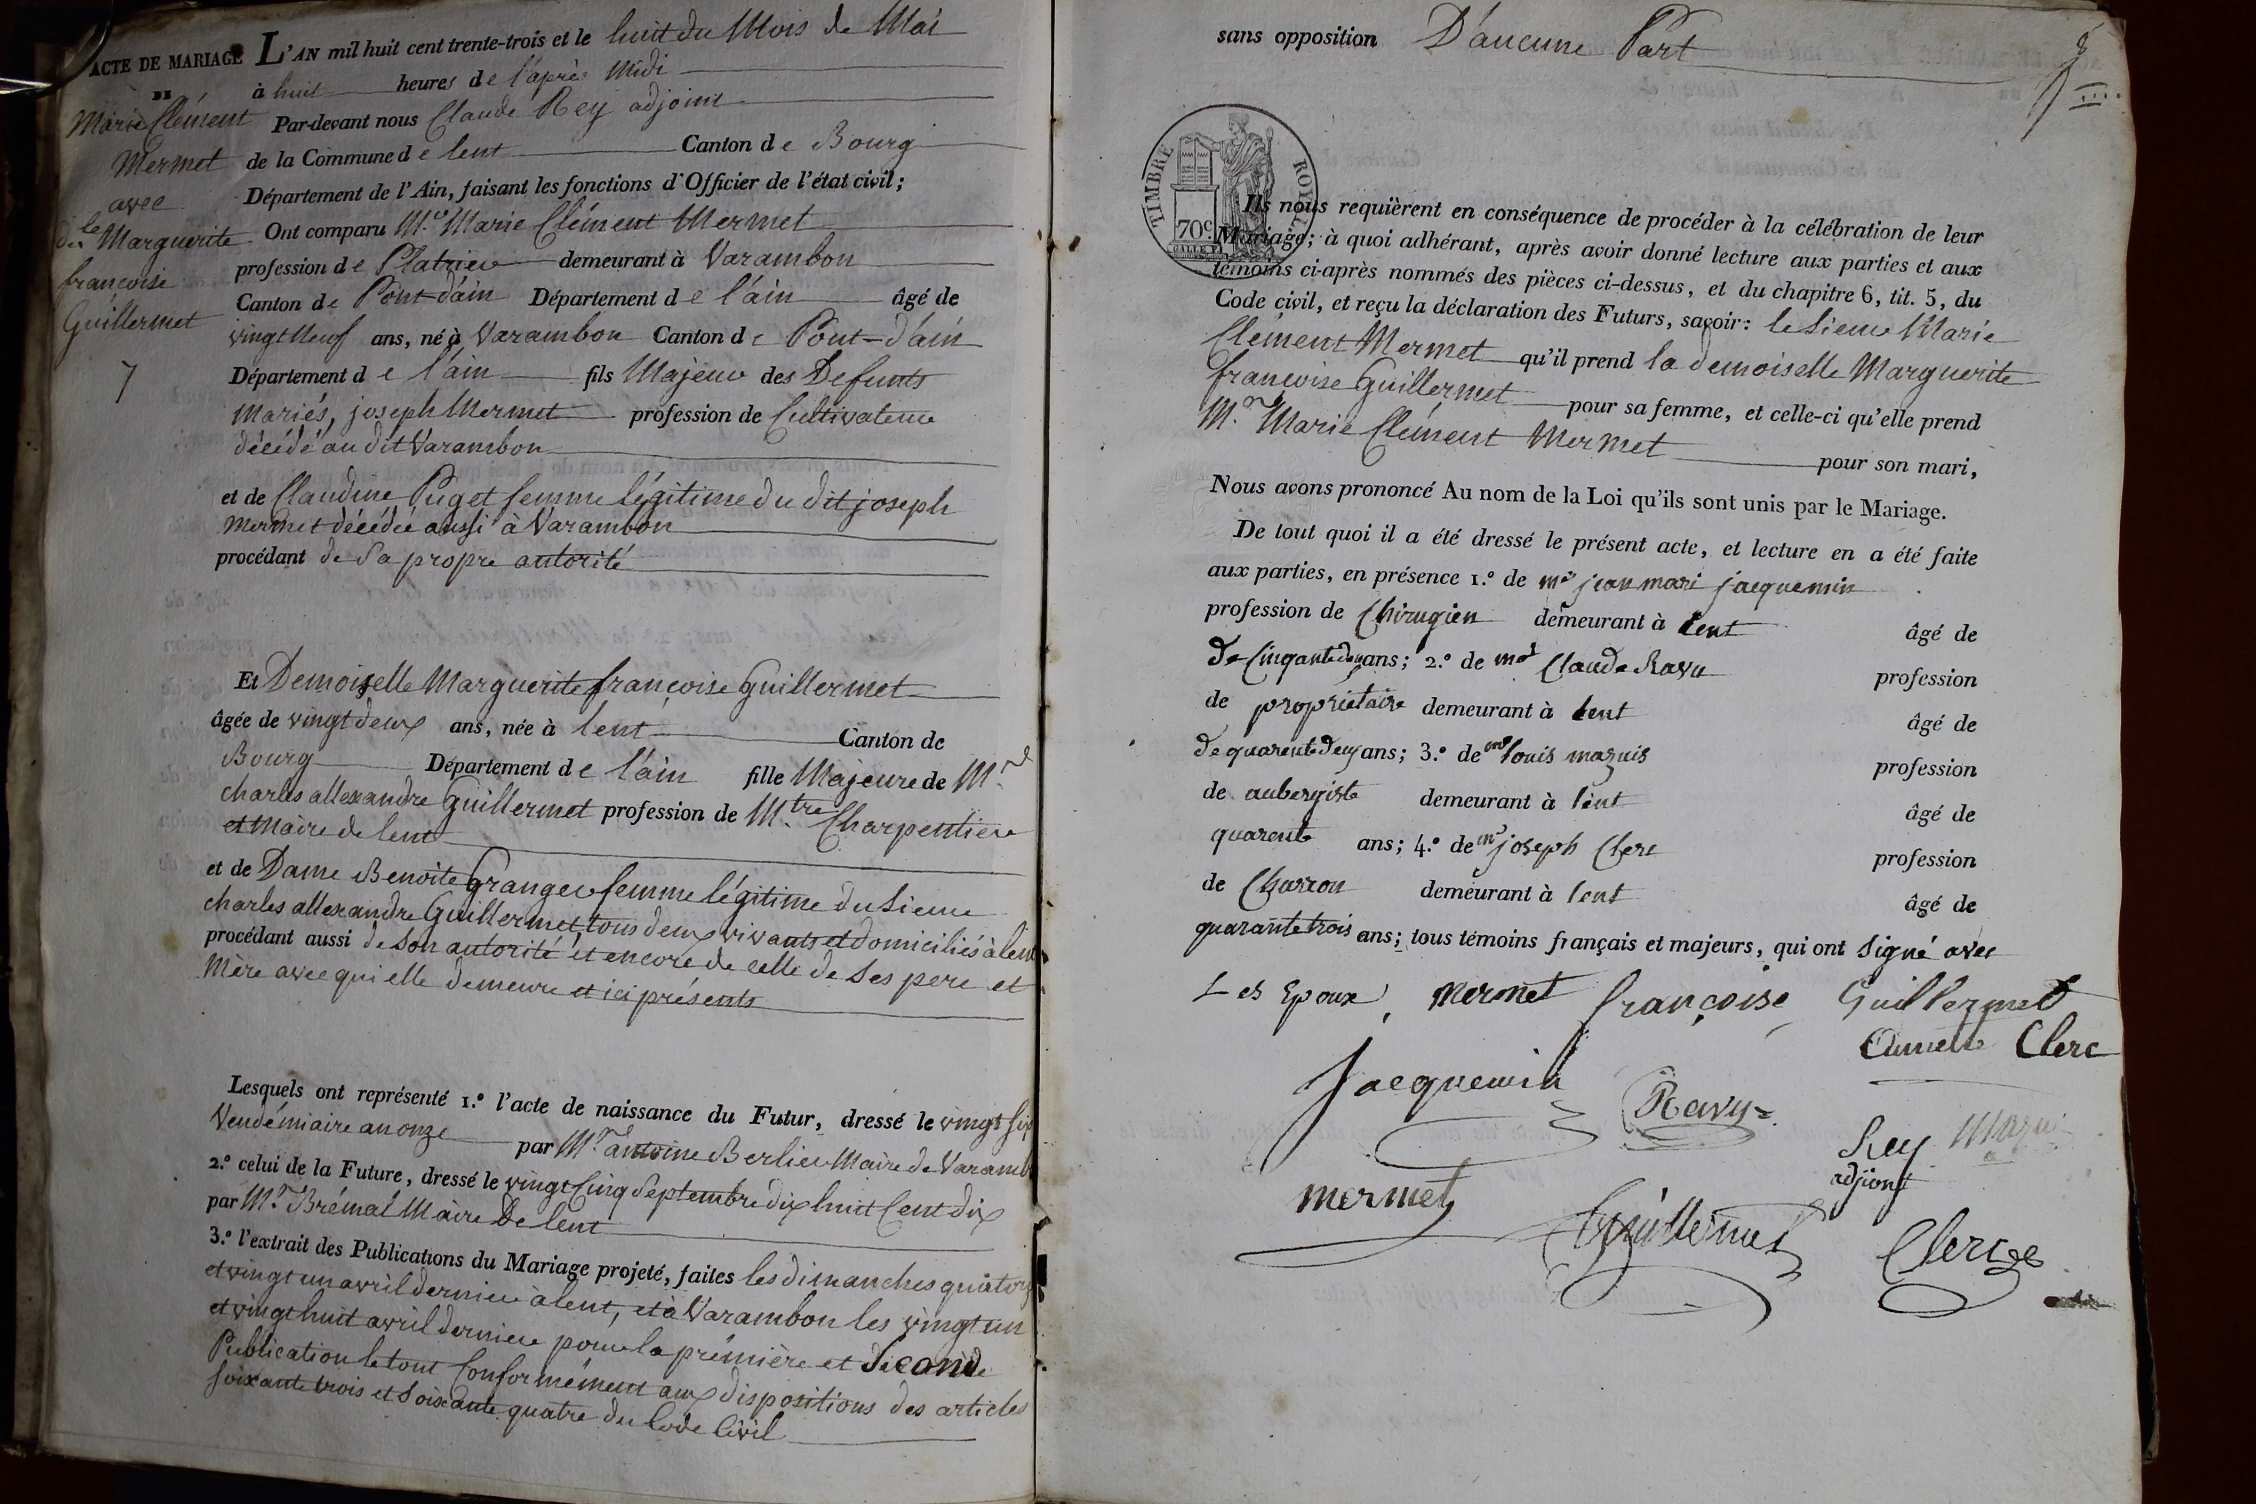 ACTE DE MARIAGE
DE
Marie Clément
Mermet
avec
dlle Marguerite
françoise
Guillermet
7
L'AN mil huit cent trente-trois et le huit du Mois de Mai
à huit heures de l'après Midi
Par-devant nous Claude Rey adjoint
de la Commune de lent Canton de Bourg
Département de l'Ain, faisant les fonctions d'Officier de l'état civil;
Ont comparu Mr Marie Clément Mermet
profession de Platrier demeurant à Varambon
Canton de Pont-d'ain Département de l'ain âgé de
vingt Neuf ans, né à Varambon Canton de Pont-d'ain
Département de l'ain fils Majeur des Defunts
Mariés, joseph Mermet profession de Cultivateur
décédé au dit Varambon
et de Claudine Puget femme légitime du dit joseph
Mermet décédée aussi à Varambon
procédant de Sa propre autorité
Et Demoiselle Marguerite françoise Guillermet
âgée de vingt deux ans, née à lent Canton de
Bourg Département de l'ain fille Majeure de Mr
charles allexandre Guillermet profession de Mtre Charpentier
et Maire de lent
et de Dame Benoite Granger femme légitime du Sieur
charles allexandre Guillermet, tous deux vivants et domiciliés à lent
procédant aussi de son autorité et encore de celle de Ses pere et
Mère avec qui elle demeure et ici présents
Lesquels ont représenté 1.° l'acte de naissance du Futur, dressé le vingt six
Vendémiaire an onze par Mr. antoine Berlier Maire de Varamb
2.° celui de la Future, dressé le vingt Cinq Septembre dix huit Cent dix
par Mr. Brémal Maire De lent
3.° l'extrait des Publications du Mariage projeté, faites les dimanches quatorz
et vingt un avril dernier à lent, et à Varambon les vingt un
et vingt huit avril dernier pour la prémière et Séconde
Publication le tout Conformément aux dispositions des articles
soixante trois et Soixante quatre du Code Civil
sans opposition D'aucune Part
8
TIMBRE ROYAL
70c.
Ils nous requièrent en conséquence de procéder à la célébration de leur
Mariage; à quoi adhérant, après avoir donné lecture aux parties et aux
témoins ci-après nommés des pièces ci-dessus, et du chapitre 6, tit. 5, du
Code civil, et reçu la déclaration des Futurs, savoir: le Sieur Marie
Clément Mermet qu'il prend la demoiselle Marguerite
françoise Guillermet pour sa femme, et celle-ci qu'elle prend
Mr. Marie Clément Mermet pour son mari,
Nous avons prononcé Au nom de la Loi qu'ils sont unis par le Mariage.
De tout quoi il a été dressé le présent acte, et lecture en a été faite
aux parties, en présence 1.° de mr jean mari jacquemin
profession de Chirugien demeurant à lent âgé de
de Cinqante deux ans; 2.° de mr Claude Ravy profession
de propriétaire demeurant à lent âgé de
de quarente deux ans; 3.° de mr louis mazuis profession
de aubergiste demeurant à lent âgé de
quarente ans; 4.° de mr joseph Clerc profession
de Charron demeurant à lent âgé de
quarante trois ans; tous témoins français et majeurs, qui ont signé avec
Les Epoux, mermet françoise Guillermet
Clerc
Jacquemin Ravy
Rey Mazui
adjiont
mermet Guillermet Clerc